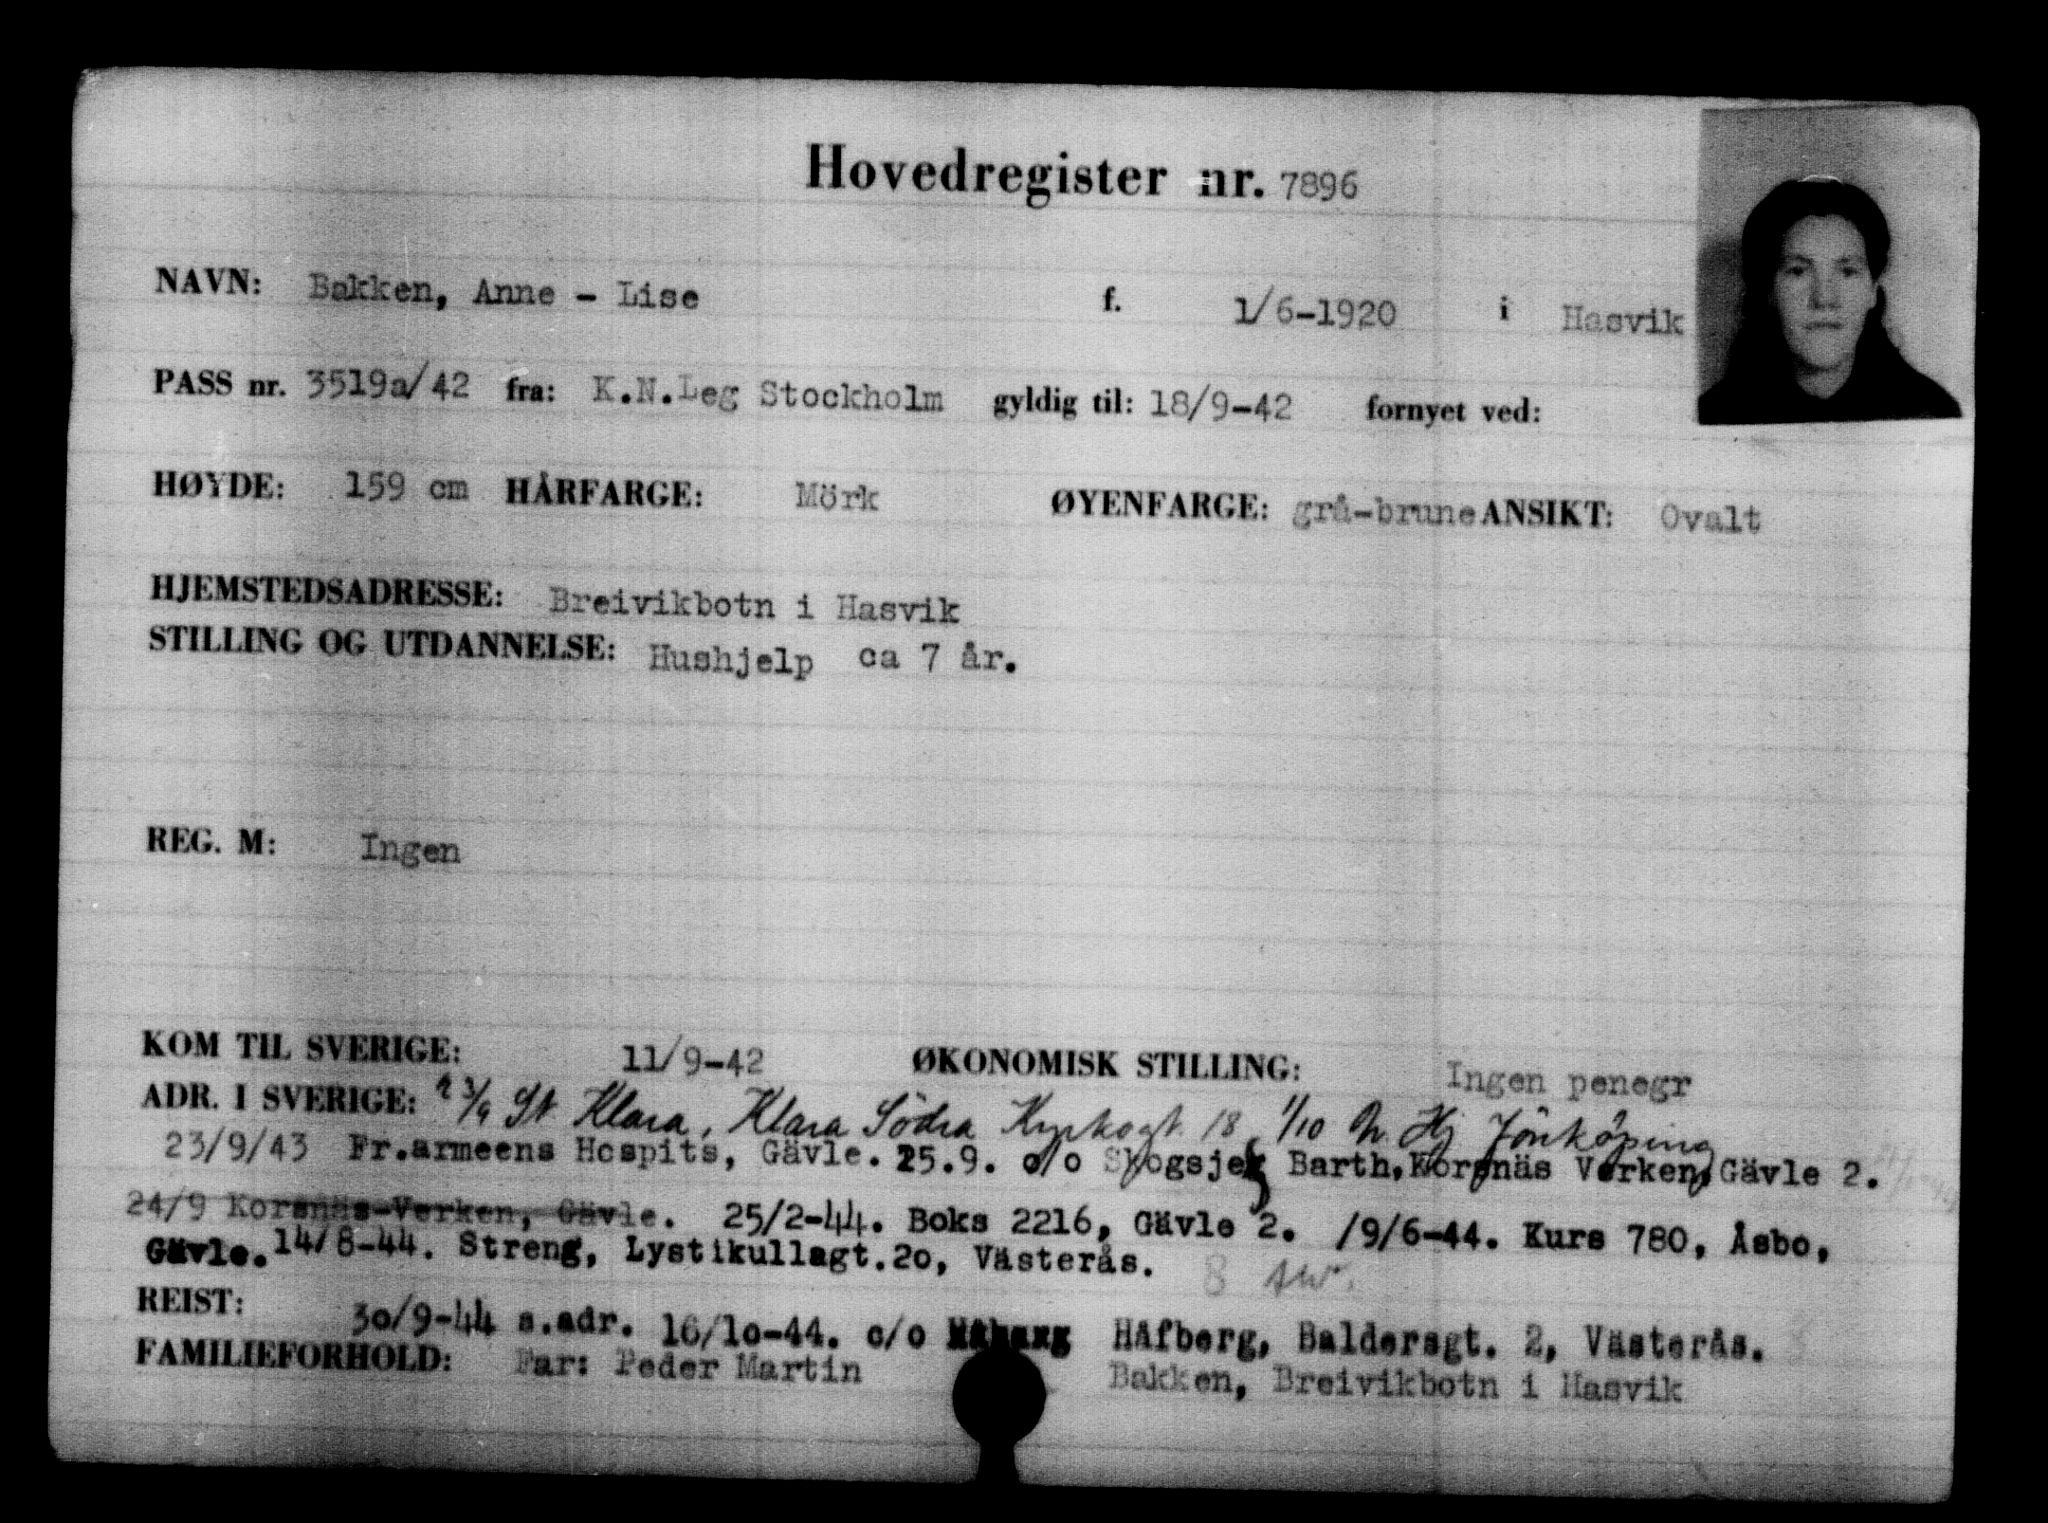 Hovedregister nr. 7896
NAVN: Bakken, Anne - Lise f. 1/6-1920 i Hasvik
PASS nr. 3519a/42 fra: K.N.Leg Stockholm gyldig til: 18/9-42 fornyet ved:
HØYDE: 159 cm HÅRFARGE: Mörk ØYENFARGE: grå-brune ANSIKT: Ovalt
HJEMSTEDSADRESSE: Breivikbotn i Hasvik
STILLING OG UTDANNELSE: Hushjelp ca 7 år.
REG. M: Ingen
KOM TIL SVERIGE: 11/9-42 ØKONOMISK STILLING: Ingen penegr
ADR. I SVERIGE: St Klara, Klara Södra Kyrkogt. 18 1/10 Hj Jönköping
23/9/43 Fr.armeens Hospits, Gävle. 25.9. c/o Skogsjef Barth, Korsnäs Verken, Gävle 2.
24/9 Korsnäs-Verken, Gävle. 25/2-44. Boks 2216, Gävle 2. /9/6-44. Kurs 780, Åsbo,
Gävle. 14/8-44. Streng, Lystikullagt.20, Västerås. 8
REIST: 30/9-44 s.adr. 16/10-44. c/o Håfberg, Baldersgt. 2, Västerås.
FAMILIEFORHOLD: Far: Peder Martin Bakken, Breivikbotn i Hasvik